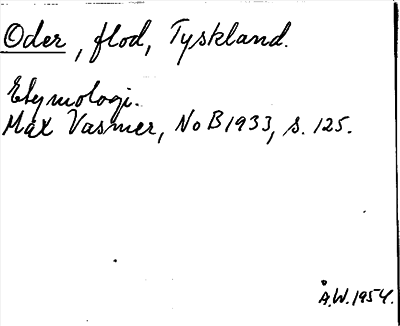 Oder, flod, Tyskland.
Etymologi.
Max Vasmer, NoB 1933, s. 125.
Å.W. 1954.